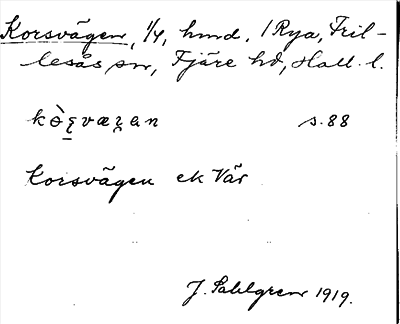 Korsvägen, 1/4, hmd. / Rya, Fril-
lesås sn, Fjäre hd, Hall. l.
s. 88
Korsvägen ek Vär
J. Sahlgren 1919.